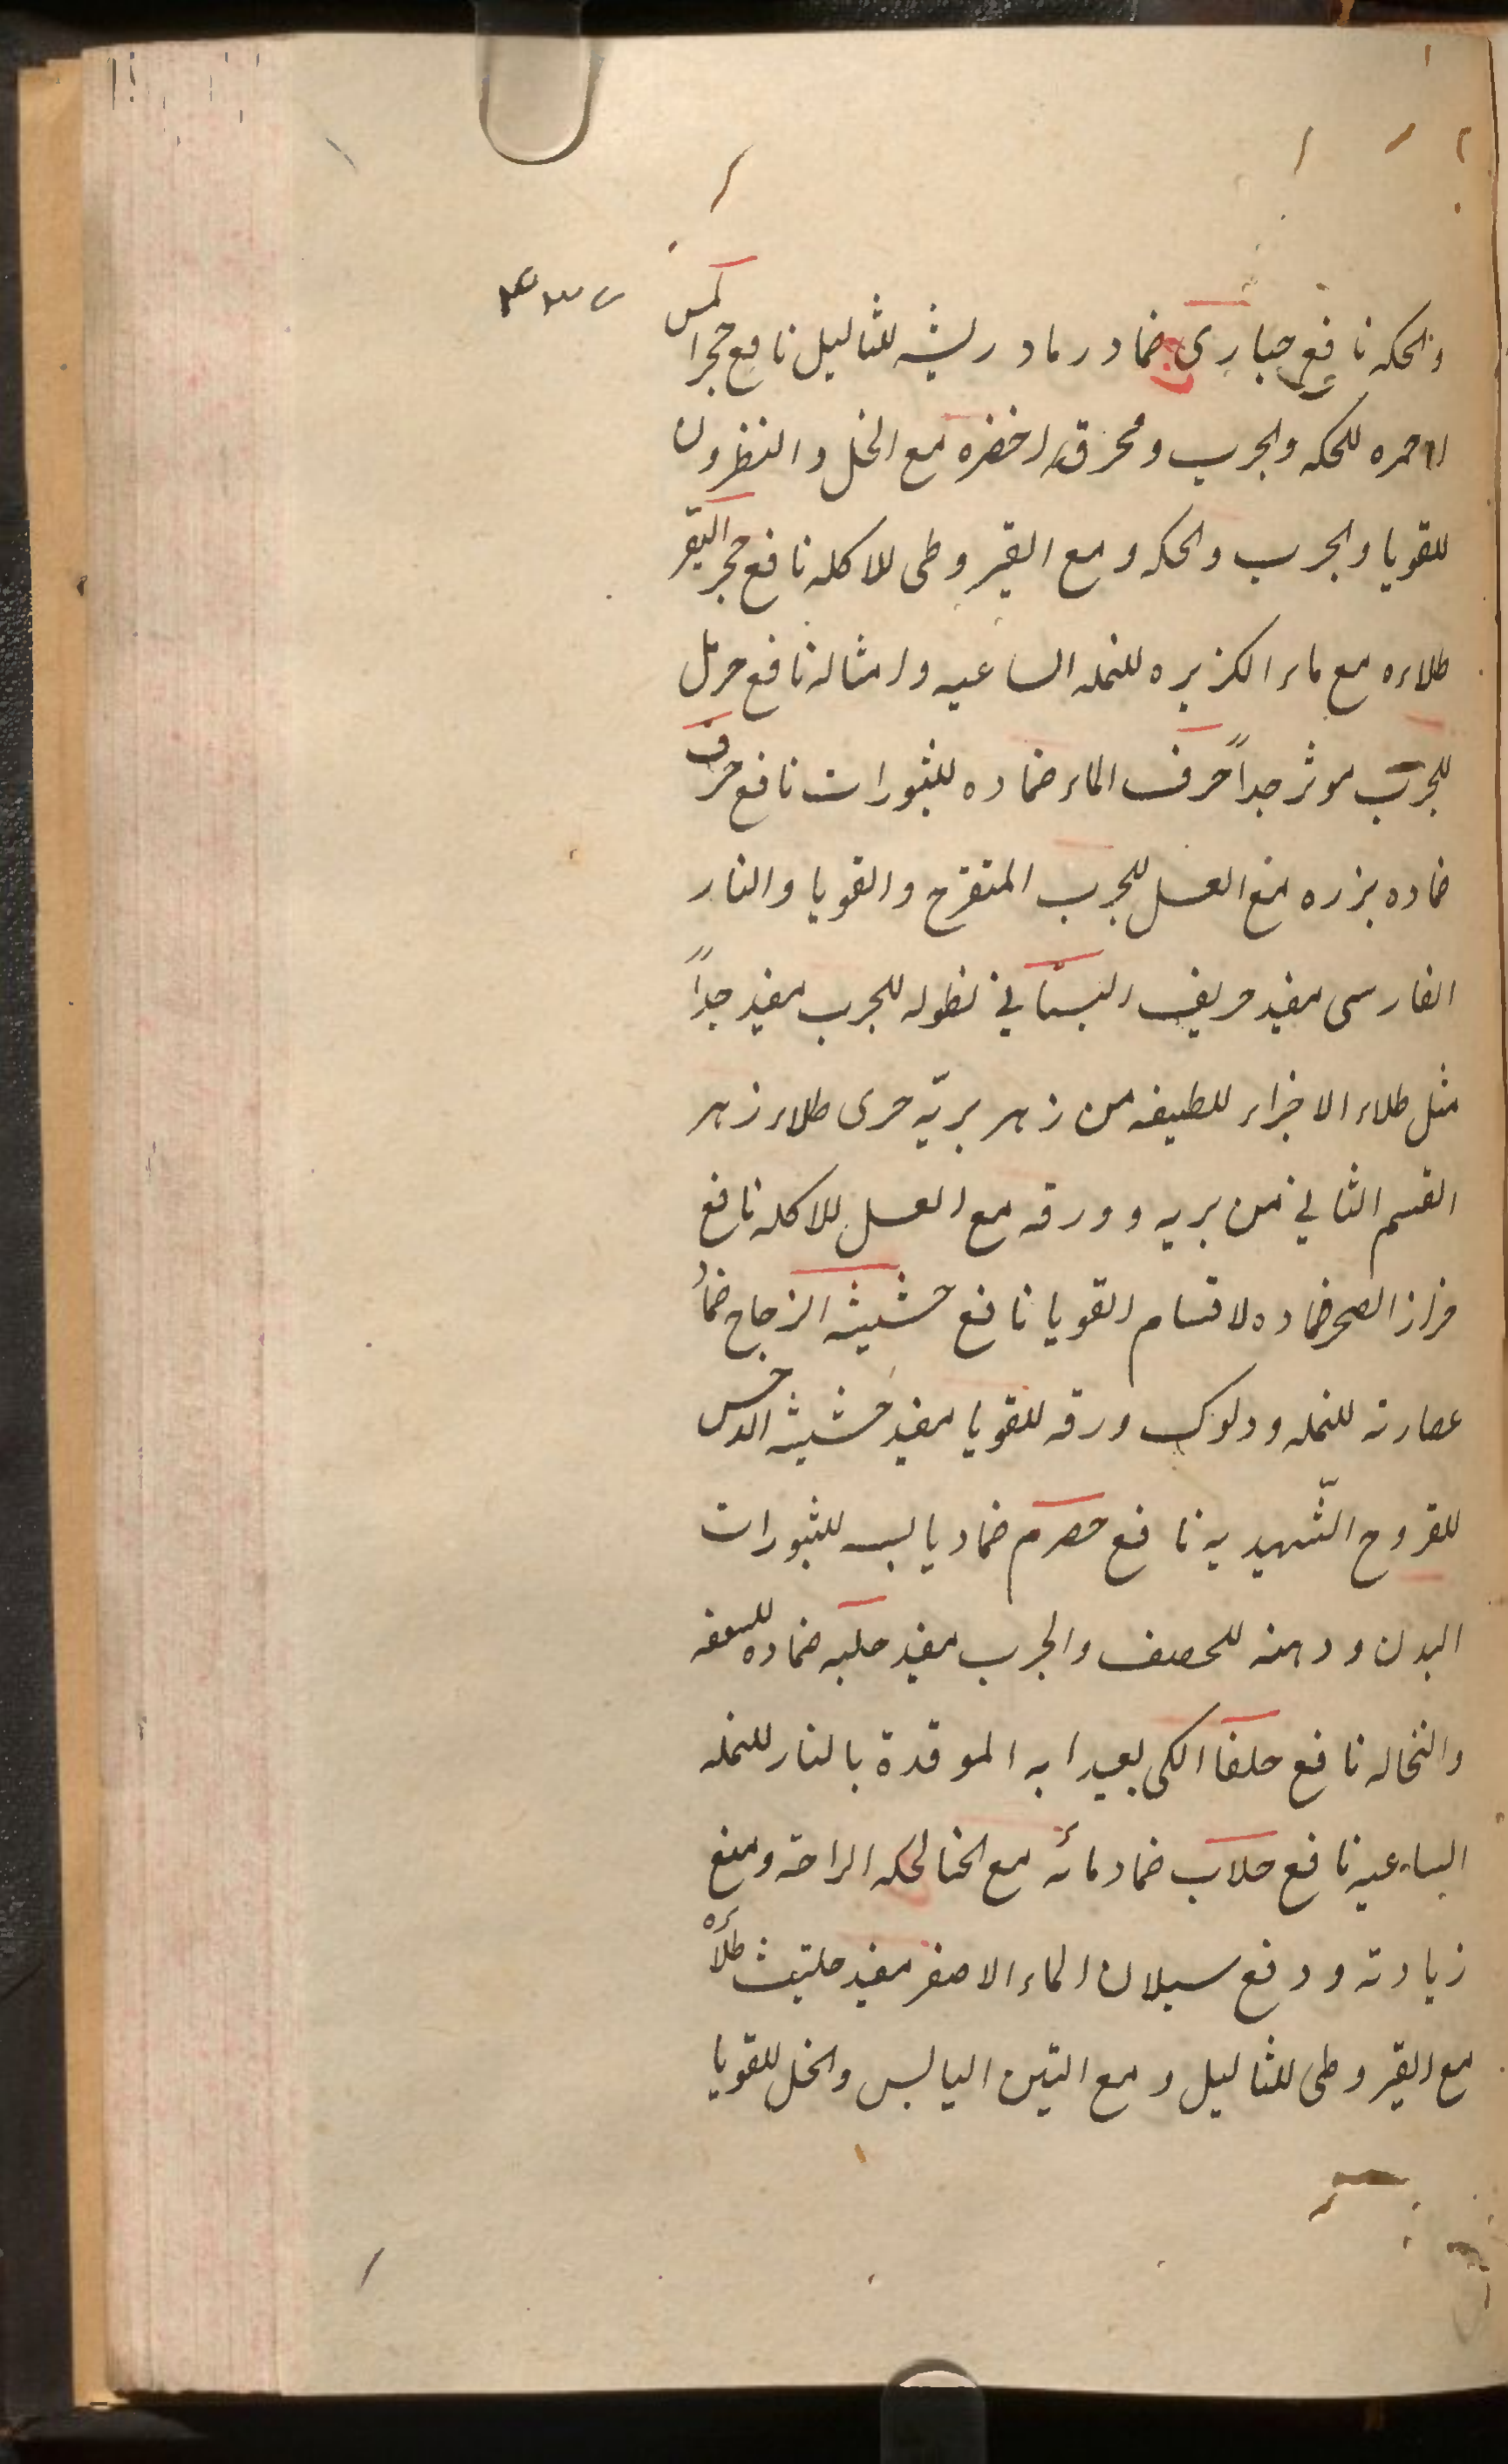 والحكه نافع حباری ضماد رماد ريشه للثاليل نافع حجرا لمس
احمره للحكه والجرب ومحرق اخضره مع الخل والنطرون
للقوبا والجرب والحكه ومع القيروطی للاكله نافع حجر البقر
طلاءه مع ماء الكزبره للنمله الساعيه وامثاله نافع حرمل
للجرب موثر جداً حرف الماء ضماده للبثورات نافع حرف
ضماده بزره مع العسل للجرب المتقرح والقوبا والنار
الفارسی مفيد حريف البستاني نطوله للجرب مفيد جداً
مثل طلاء الاجزاء للطيفه من زهر بريّه حری طلاء زهر
القسم الثاني من بريه وورقه مع العسل للاكله نافع
حزاز الصخر ضماده لاقسام القوبا نافع حشيشه الزجاج ضماد
عصارته للنمله ودلوك ورقه للقوبا مفيد حشيشه الداحس
للقروح الشّهديه نافع حصرم ضماد يابسه للبثورات
البدن ودهنه للحصف والجرب مفيد حلبه ضماده للسعفه
والنخاله نافع حلفا الكی بعيدانه الموقدة بالنار للنمله
الساعيه نافع حلاب ضماد مائه مع الحنا لحكه الراحة ومنع
زيادته ودفع سيلان الماء الاصفر مفيد حلتيث طلاءه
مع القيروطی للثاليل ومع التين اليابس والخل للقوبا